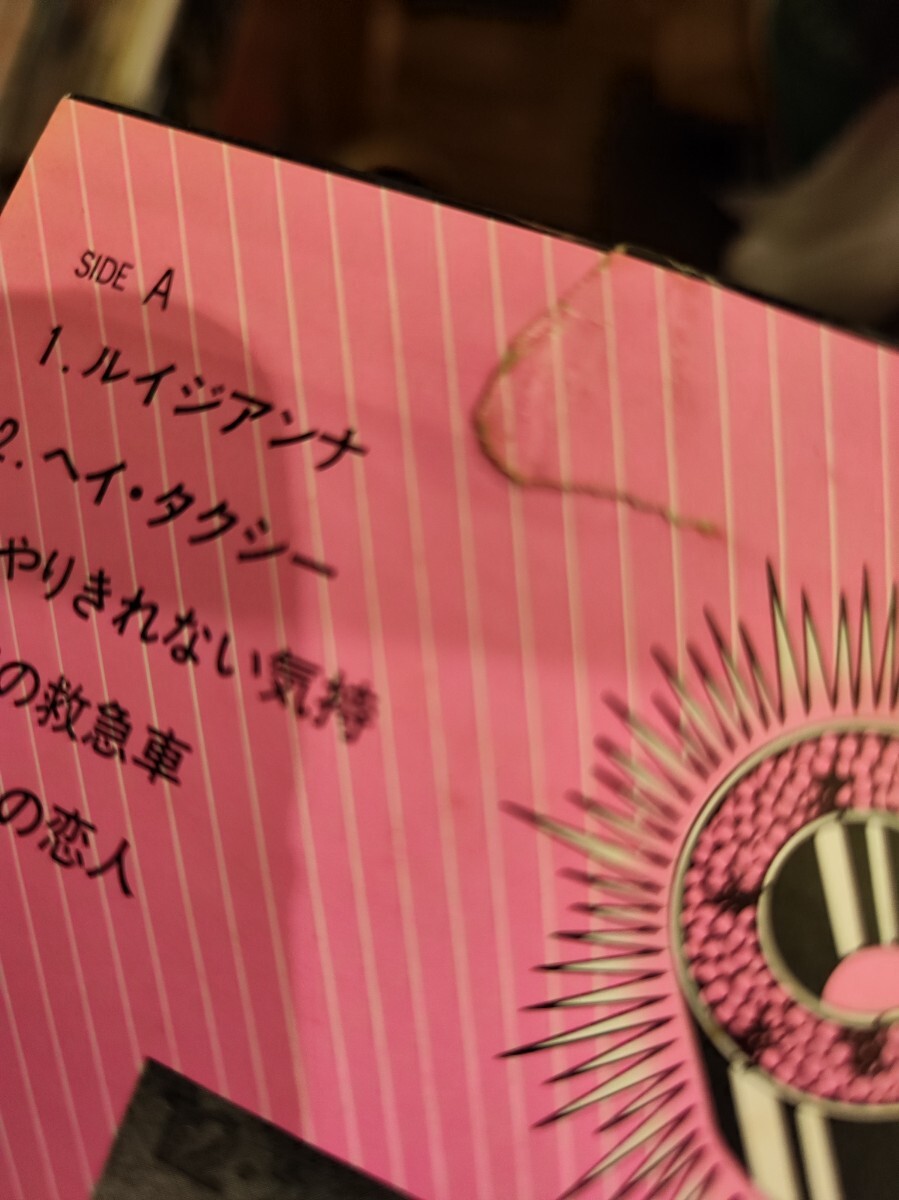 SIDE A
1.ルイジアンナ
2.ヘイ・タクシー
やりきれない気持
の救急車
の恋人